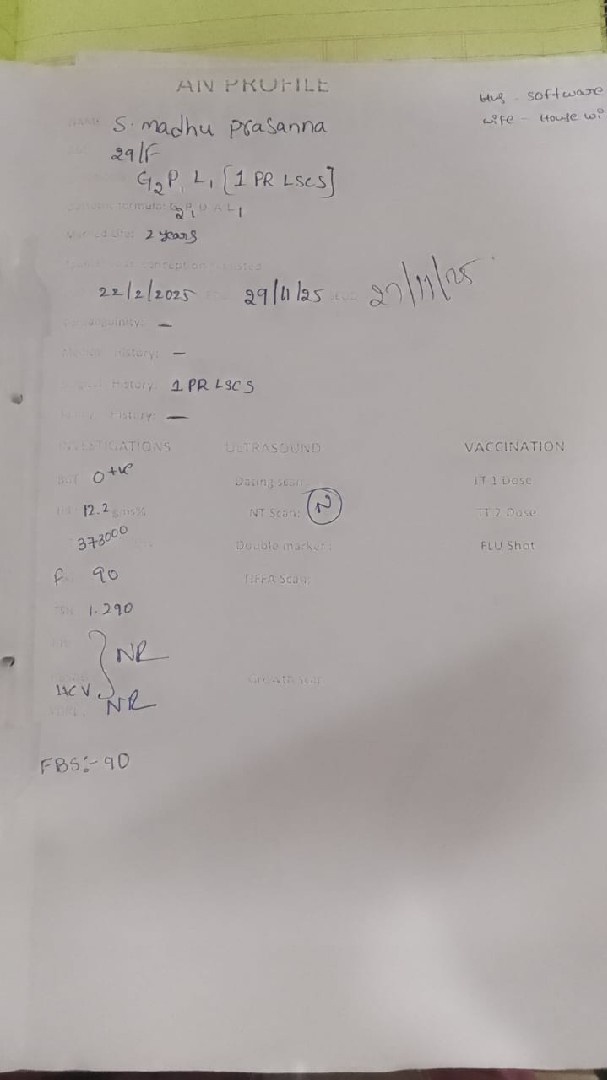 AN PROFILE
Hus - Software
wife - House wi
NAME S. madhu prasanna
29/F
G2P1L1 [1 PR LSCS]
formula: G2P1 A L1
2 years
conception
22/2/2025 29/11/25 27/11/25
consanguinity: —
history: —
History: 1 PR LSCS
History: —
INVESTIGATIONS ULTRASOUND VACCINATION
O+ve Dating scan TT 1 Dose
12.2 gms% NT Scan: N TT 2 Dose
373000 Double marker: FLU Shot
F 90 TIFFA Scan:
TSH 1.290
NR
HCV NR
FBS:- 90